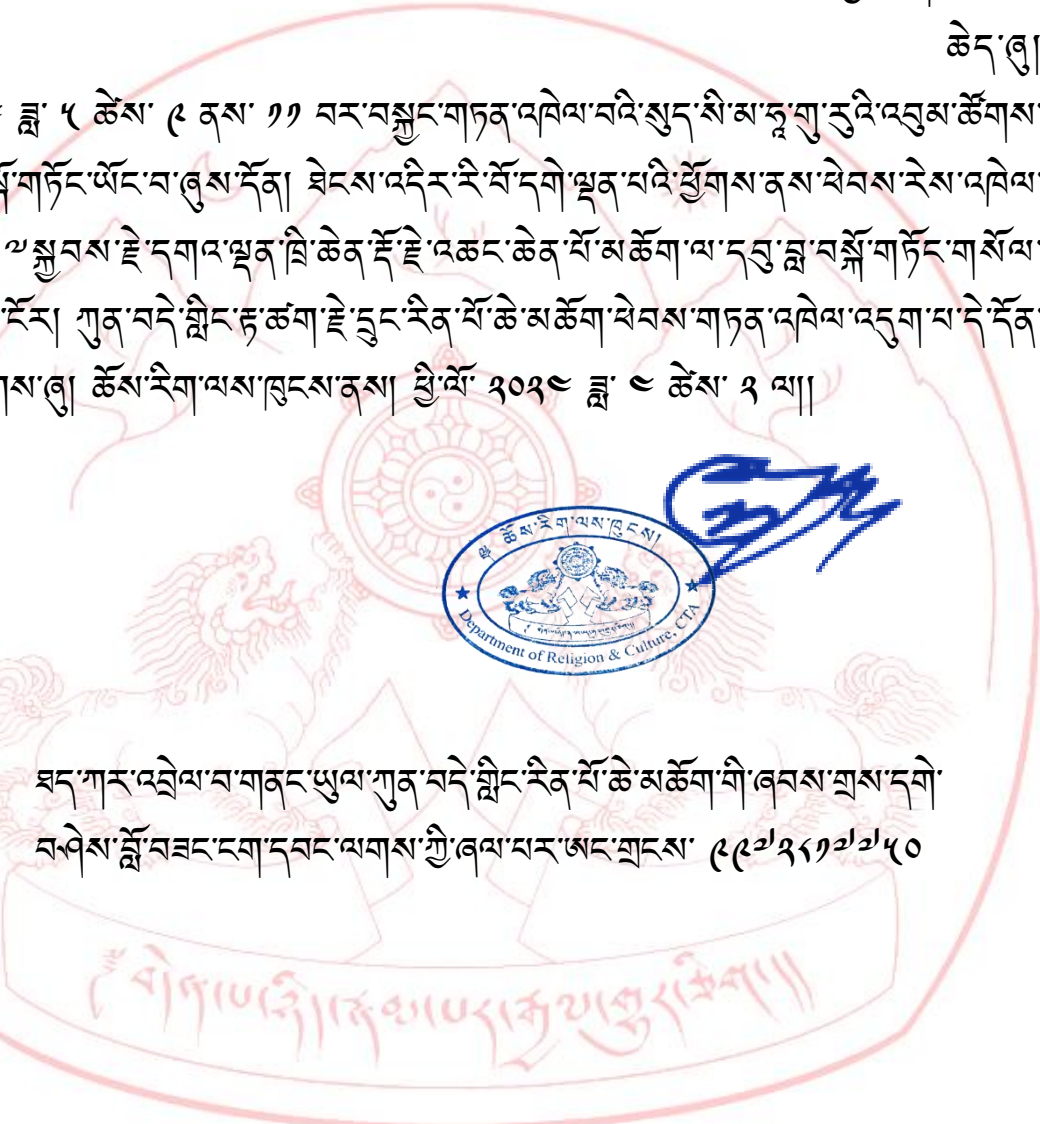 ཆེད་ཞུ།
ཟླ་ ༥ ཚེས་ ༩ ནས་ ༡༡ བར་བསྐྱང་གཏན་འཁེལ་བའི་སུད་སི་མ་ཧཱ་གུ་རུའི་འབུམ་ཚོགས་
གཏོང་ཡོང་བ་ཞུས་དོན། ཐེངས་འདིར་རི་བོ་དགེ་ལྡན་པའི་ཕྱོགས་ནས་ཕེབས་རེས་འཁེལ་
༧སྐྱབས་རྗེ་དགའ་ལྡན་ཁྲི་ཆེན་རྡོ་རྗེ་འཆང་ཆེན་པོ་མཆོག་ལ་དབུ་བླ་བསྐོ་གཏོང་གསོལ་
ངོར། ཀུན་བདེ་གླིང་རྟ་ཚག་རྗེ་དྲུང་རིན་པོ་ཆེ་མཆོག་ཕེབས་གཏན་འཁེལ་འདུག་པ་དེ་དོན་
ཞུ། ཆོས་རིག་ལས་ཁུངས་ནས། ཕྱི་ལོ་ ༢༠༢༤ ཟླ་ ༤ ཚེས་ ༢ ལ།།
༄ ཆོས་རིག་ལས་ཁུངས།
Department of Religion & Culture, CTA
ཐད་ཀར་འབྲེལ་བ་གནང་ཡུལ་ཀུན་བདེ་གླིང་རིན་པོ་ཆེ་མཆོག་གི་ཞབས་གྲས་དགེ་
བཤེས་བློ་བཟང་ངག་དབང་ལགས་ཀྱི་ཞལ་པར་ཨང་གྲངས་ ༩༩༧༢༨༡༧༧༥༠